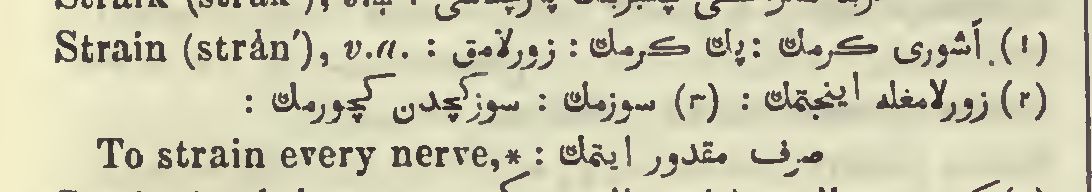 Strain (strån′), v.a. (١) آشوری كرمك : پك كرمك : زورلامق :
(٢) زورلامغله اینجتمك : (٣) سوزمك : سوزكچدن كچورمك :
To strain every nerve,* صرف مقدور ایتمك :